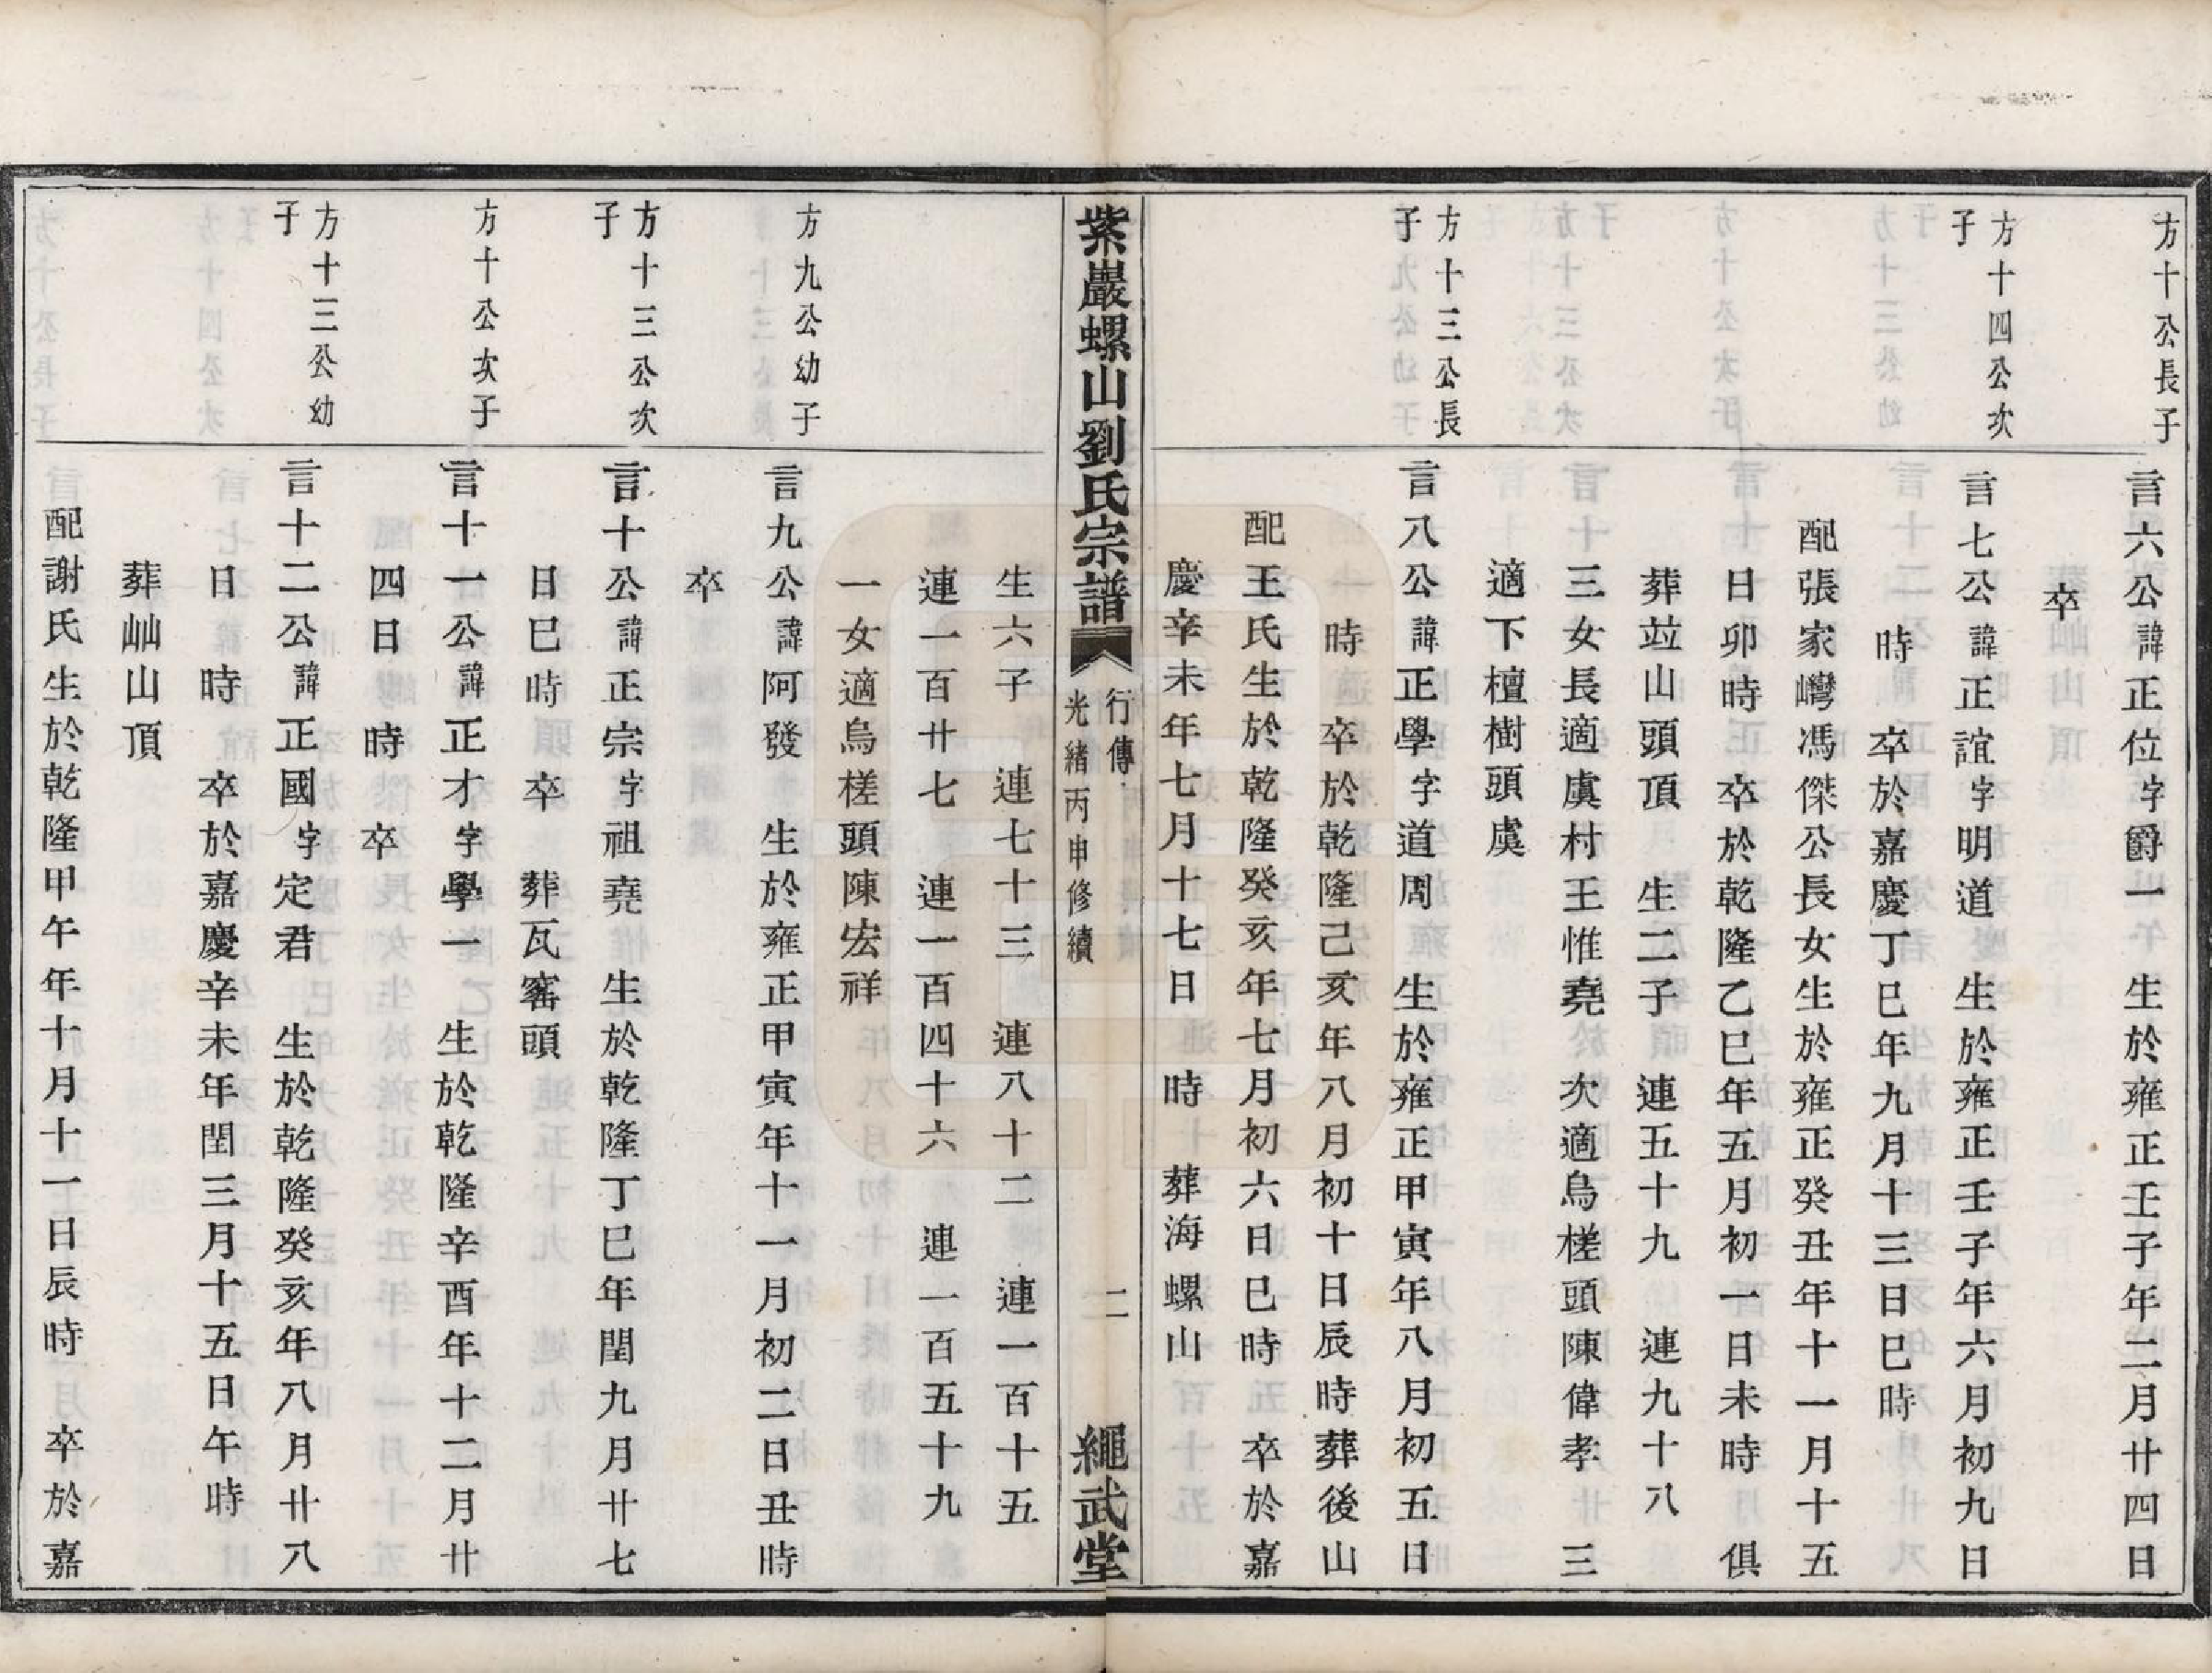 方十公長子
言六公諱正位字爵一　生於雍正壬子年二月廿四日
卒
方十四公次
子
言七公諱正誼字明道　生於雍正壬子年六月初九日
時　卒於嘉慶丁巳年九月十三日巳時
配張家巒馮傑公長女生於雍正癸丑年十一月十五
日卯時　卒於乾隆乙巳年五月初一日未時　俱
葬竝山頭頂　生二子　連五十九　連九十八
三女長適虞村王惟堯　次適烏槎頭陳偉孝　三
適下檀樹頭虞
方十三公長
子
言八公諱正學字道周　生於雍正甲寅年八月初五日
時　卒於乾隆己亥年八月初十日辰時葬後山
配王氏生於乾隆癸亥年七月初六日巳時　卒於嘉
慶辛未年七月十七日　時　葬海螺山
紫巖螺山劉氏宗譜
行傳
光緒丙申修續
二
繩武堂
生六子　連七十三　連八十二　連一百十五
連一百廿七　連一百四十六　連一百五十九
一女適烏槎頭陳宏祥
方九公幼子
言九公諱阿發　生於雍正甲寅年十一月初二日丑時
卒
方十三公次
子
言十公諱正宗字祖堯　生於乾隆丁巳年閏九月廿七
日巳時　卒　葬瓦窰頭
方十公次子
言十一公諱正才字學一　生於乾隆辛酉年十二月廿
四日　時　卒
方十三公幼
子
言十二公諱正國字定君　生於乾隆癸亥年八月廿八
日　時　卒於嘉慶辛未年閏三月十五日午時
葬䢼山頂
配謝氏生於乾隆甲午年十月十一日辰時　卒於嘉